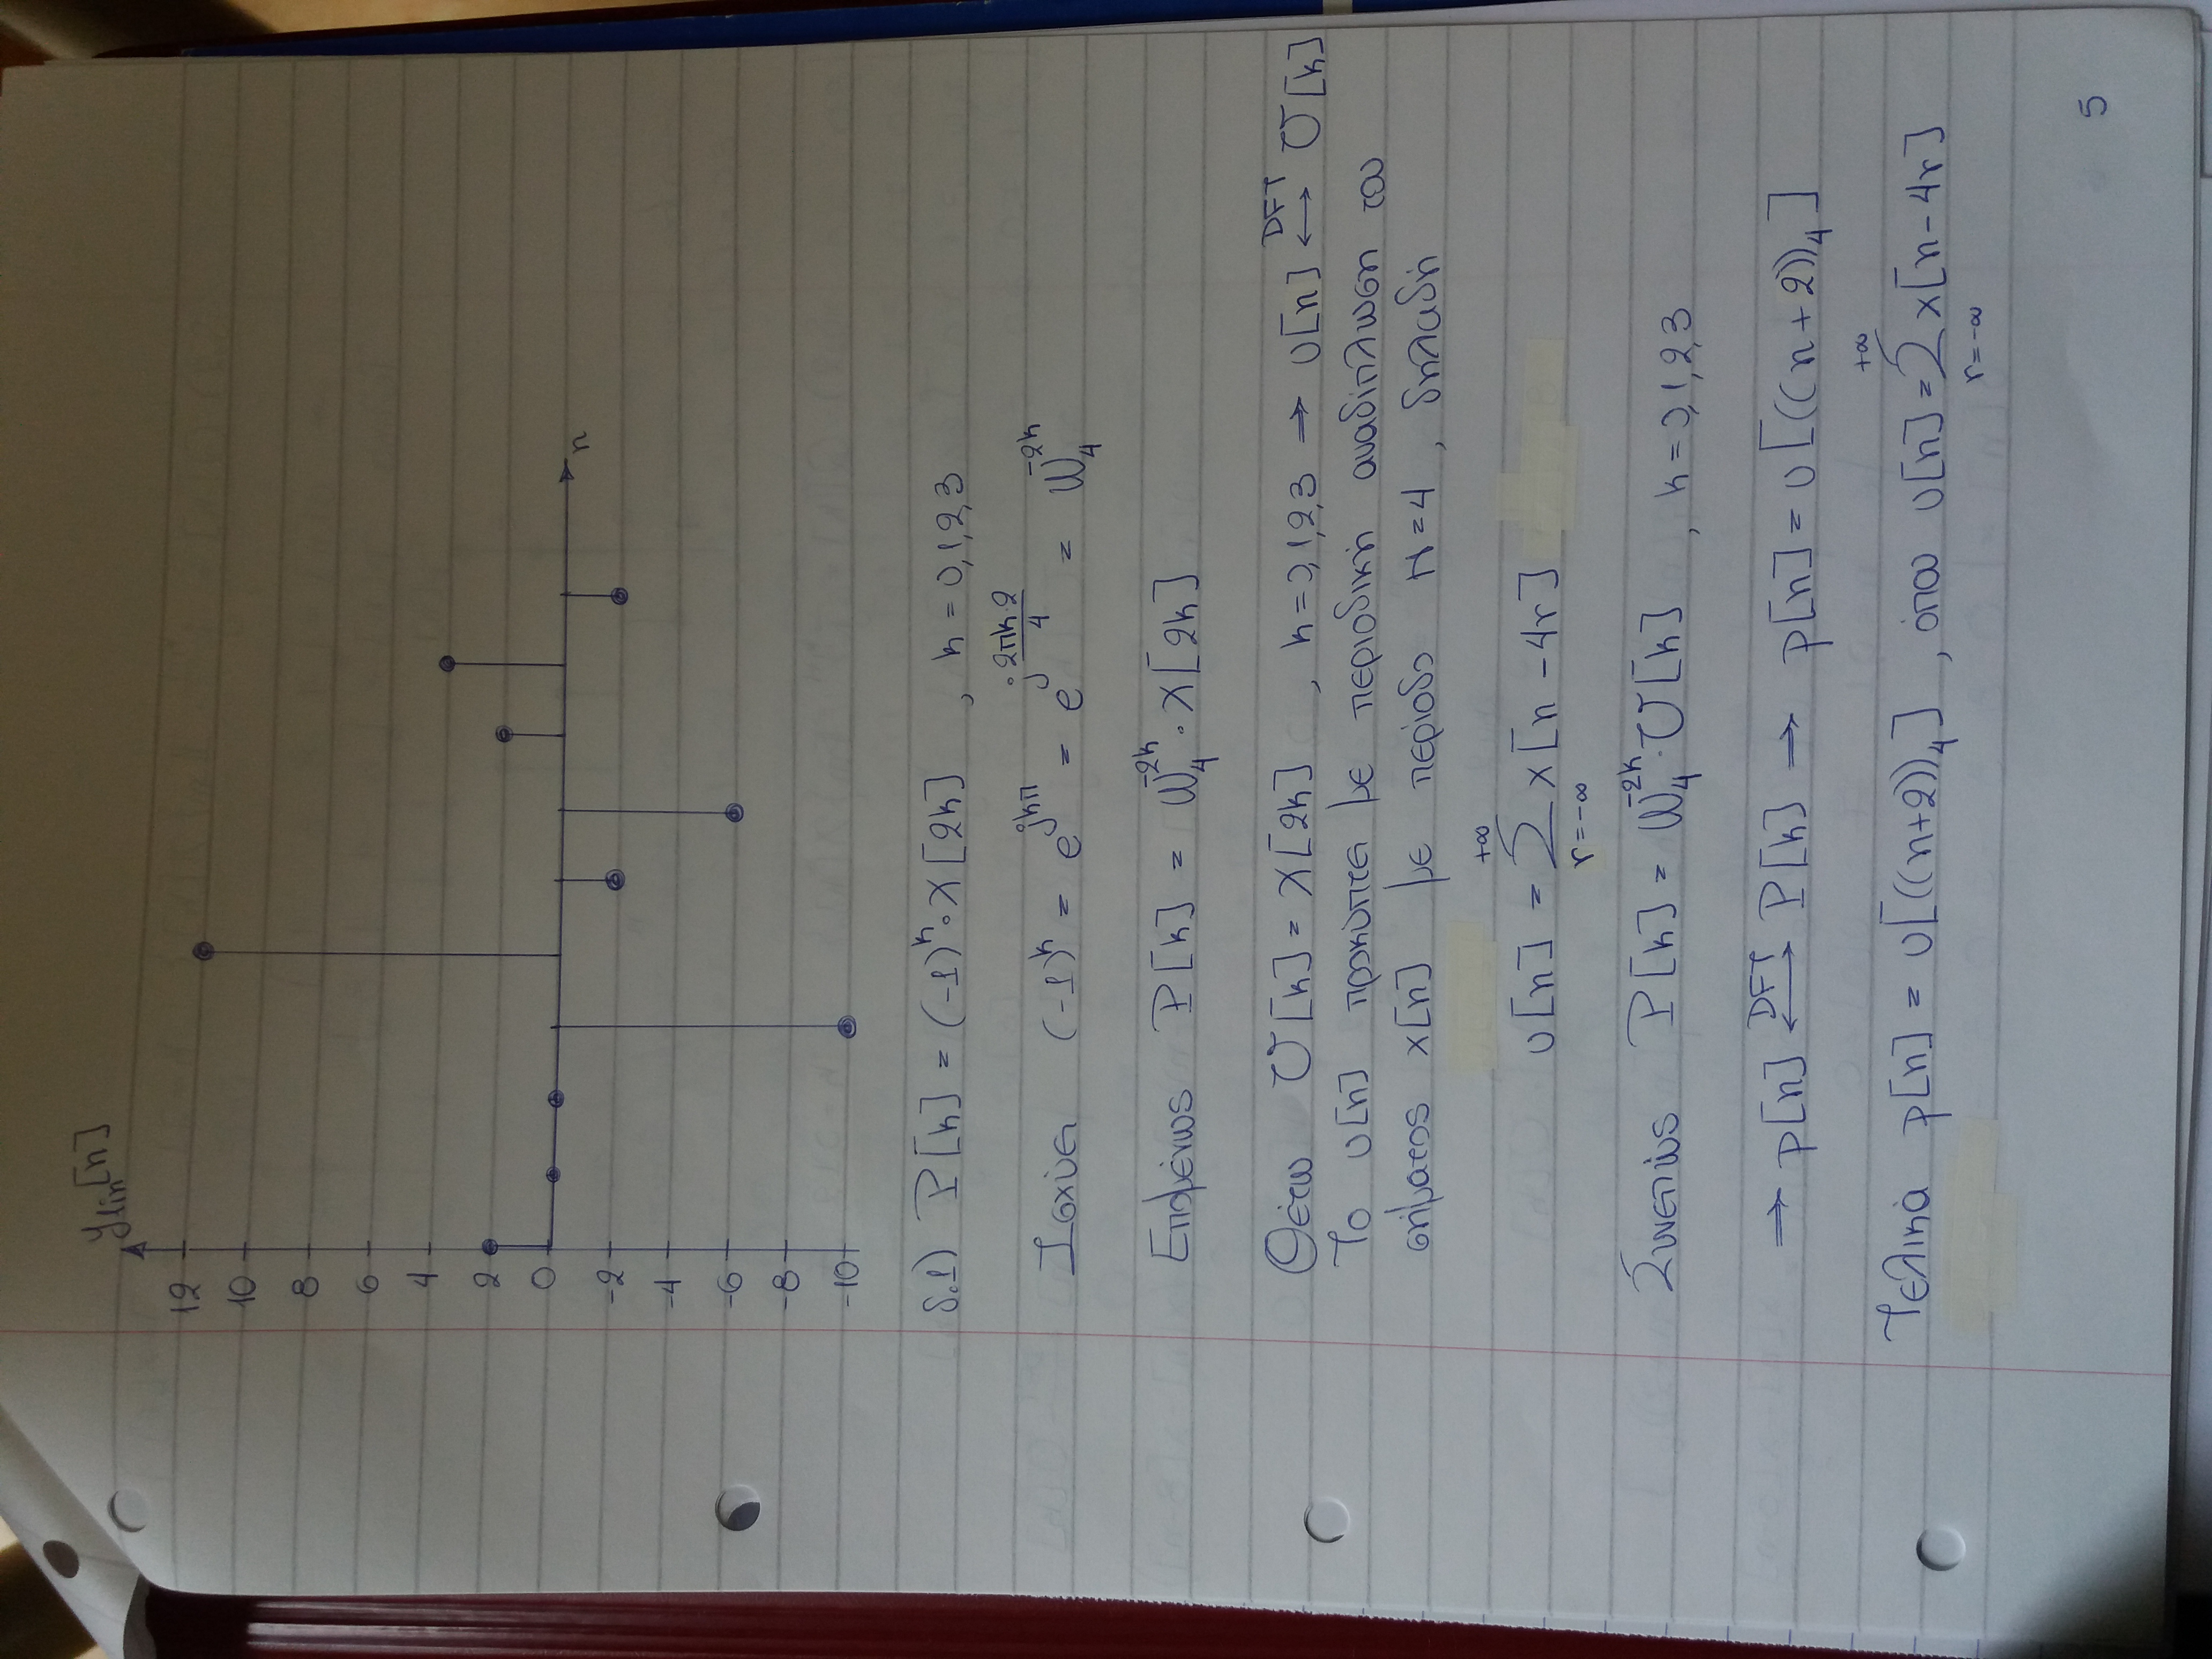 y_lin[n]
12
10
8
6
4
2
0
-2
-4
-6
-8
-10
n
δ.1) P[k] = (-1)^k · X[2k] , k = 0,1,2,3
Ισχύει (-1)^k = e^{jkπ} = e^{j\frac{2πk·2}{4}} = W_4^{-2k}
Επομένως P[k] = W_4^{-2k} · X[2k]
Θέτω U[k] = X[2k] , k=0,1,2,3 ⇒ υ[n] \overset{DFT}{⟷} U[k]
Το υ[n] προκύπτει με περιοδική αναδίπλωση του
σήματος x[n] με περίοδο N=4 , δηλαδή
υ[n] = \sum_{r=-∞}^{+∞} x[n - 4r]
Συνεπώς P[k] = W_4^{-2k} · U[k] , k = 0,1,2,3
⇒ p[n] \overset{DFT}{⟷} P[k] ⇒ p[n] = υ[((n+2))_4]
Τελικά p[n] = υ[((n+2))_4] , όπου υ[n] = \sum_{r=-∞}^{+∞} x[n-4r]
5